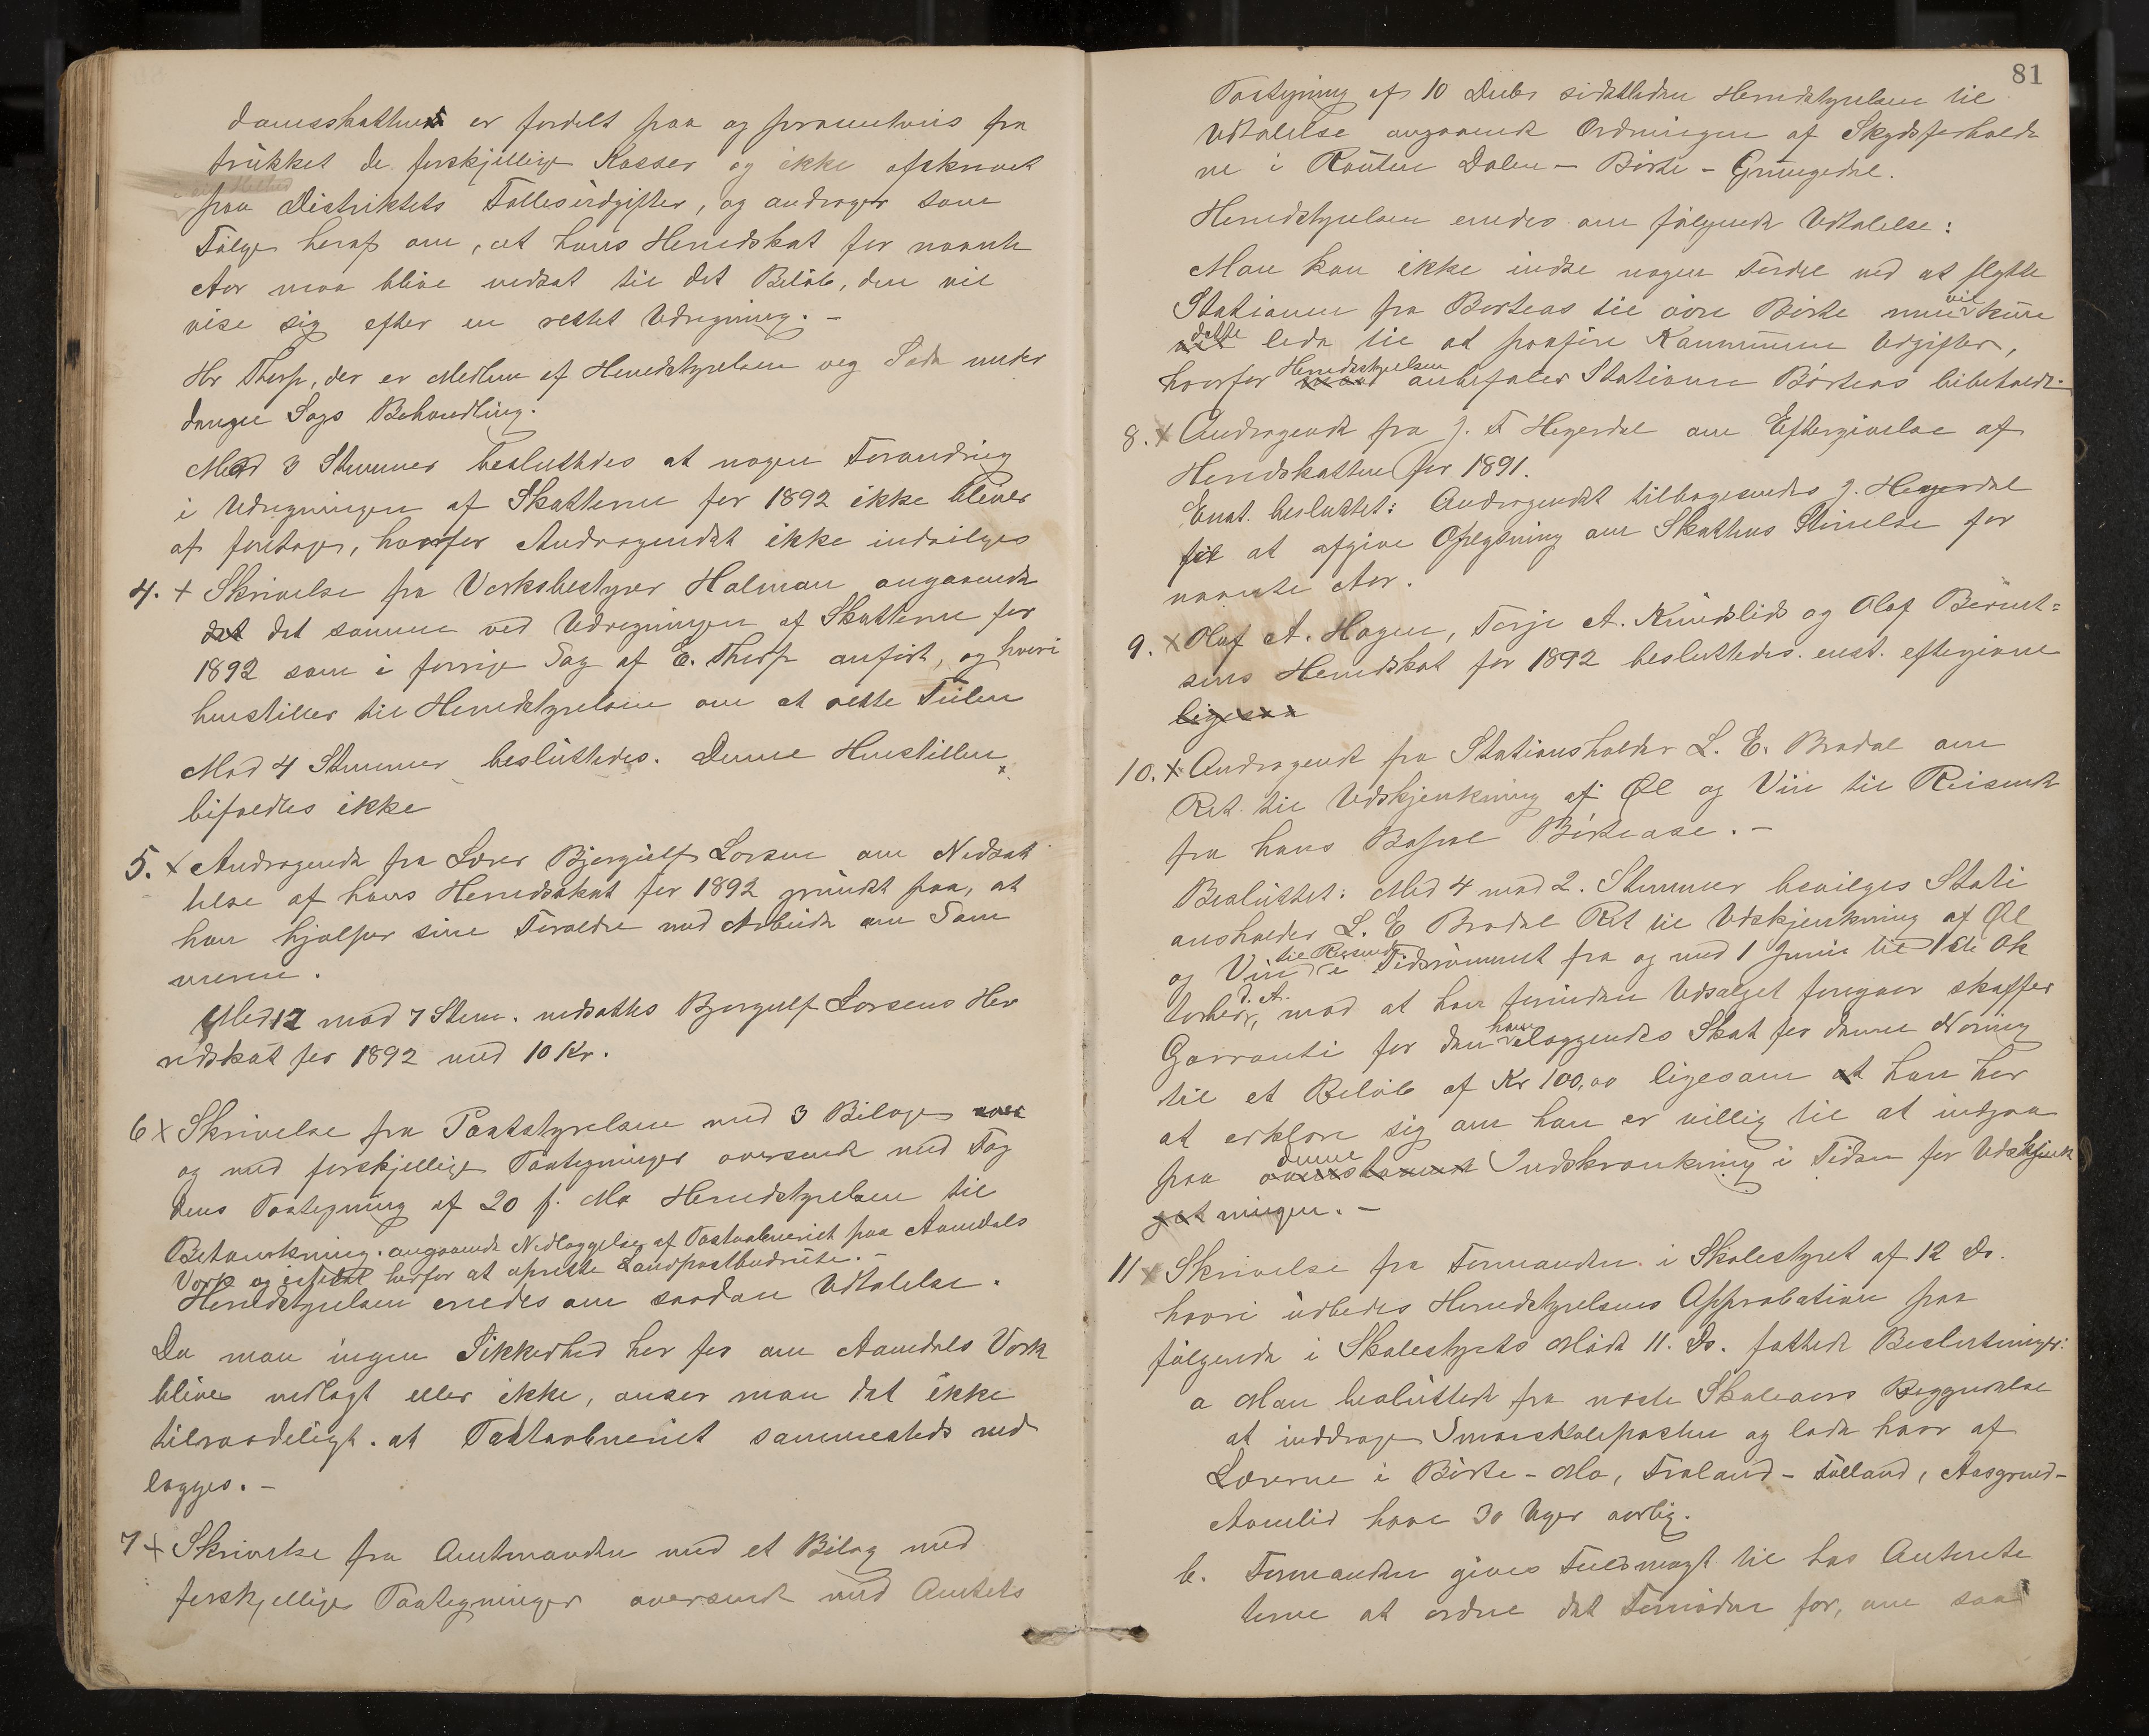 damsskatten er fordelt paa og procentvis fra
trukket de forskjellige Kasser og ikke afskrevet
paa Distriktets Fællesudgifter, og andrager som
Følge heraf om, at hans Herredskat for nævnte
Aar maa blive nedsat til det Beløb, den vil
vise sig efter en rettet Udregning. –
Hr Thorp, der er Medlem af Herredstyrelsen veg Sæde under
denne Sags Behandling.
Med 3 Stemmer besluttedes at nogen Forandring
i Udregningen af Skatterne for 1892 ikke bliver
at foretage, hvorfor Andragendet ikke indvilges
4. + Skrivelse fra Værksbestyrer Holman angaaende
det det samme ved Udregningen af Skatterne for
1892 som i forrige Sag af E. Thorp anført, og hvori
henstilles til Herredstyrelsen om at rette Feilen
Mod 4 Stemmer besluttedes. Denne Henstillen
bifaldtes ikke
5. x Andragende fra Lærer Bjørgulf Larsen om Nedsæt
telse af hans Herredsskat for 1892 grundet paa, at
han hjælper sine Forældre med Arbeide om Som
meren.
Med 12 mod 7 Stem. nedsattes Bjørgulf Larsens Her
redskat for 1892 med 10 Kr.
6 x Skrivelse fra Poststyrelsen med 3 Bilage
og med forskjellige Paategninger oversendt med Fog
dens Paategning af 20 f. M. Herredstyrelsen til
Betænkning. angaaende Nedlæggelse af Postaabneriet paa Aamdals
Værk og istedet herfor at oprette Landpostbudrute. –
Herredstyrelsen enedes om saadan Udtalelse.
Da man ingen Sikkerhed har for om Aamdals Værk
bliver nedlagt eller ikke, anser man det ikke
tilraadeligt. at Postaabneriet sammesteds ned
lægges. –
7 + Skrivelse fra Amtmanden med et Bilag med
forskjellige Paategninger oversendt med Amtets
81
Paategning af 10 Decbr sidstleden Herredstyrelsen til
Udtalelse angaaende Ordningen af Skydsforholde
ne i Routen Dalen – Børte – Grungedal.
Herredstyrelsen enedes om følgende Udtalelse:
Man kan ikke indse nogen Fordel ved at flytte
Stationen fra Børteaas til øvre Børte men vil kun
dette lede til at paaføre Kommunen Udgifter,
hvorfor Herredsstyrelsen anbefaler Stationen Børteaas bibeholdt.
8. x Andragende fra J. T Hegerdal om Eftergivelse af
Herredskatten for 1891.
Enst. besluttet: Andragendet tilbagesendes J. Hegerdal
for at afgive Oplysning om Skattens Størrelse for
nævnte Aar.
9. x Olaf A. Hagen, Terje A. Knudslid og Olaf Bernt=
sens Herredskat for 1892 besluttedes. enst. eftergivne
ligesaa
10. x Andragende fra Stationsholder L. E. Brodal om
Ret til Udskjænkning af Øl og Vin til Reisende
fra hans Bopæl Børteaase. –
Besluttet: Med 4 mod 2. Stemmer bevilges Stati
onsholder L. E Brodal Ret til Udskjænkning af Øl
og Vin til Reisende i Tidsrummet fra og med 1 Juni til 1ste Ok
tober d. A., mod at han forinden Udsalget foregaar skaffer
Garranti for den ham paalæggendes Skat for denne Næring
til et Beløb af Kr 100,00 ligesom at han har
at erklære sig om han er villig til at indgaa
paa denne Indskrænkning i Tiden for Udskjænk
ningen. –
11 x Skrivelse fra Formanden i Skolestyret af 12 ds.
hvori udbedes Herredstyrelsens Approbation paa
følgende i Skolestyrets Møde 11. ds. fattede Beslutninger:
a Man besluttede fra næste Skoleaars Begyndelse
at inddrage Smaaskoleposten og lade hver af
Lærerne i Børte – Mo, Froland – Felland, Aasgrend –
Aamlid have 30 Uger aarlig.
b. Formanden gives Fuldmagt til hos Autorite
terne at ordne det Fornødne for, om saa